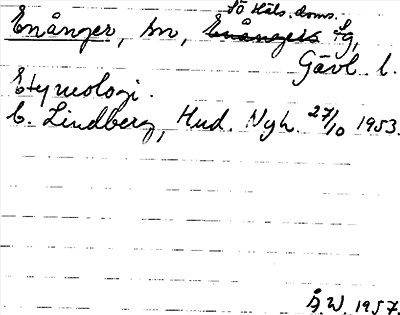 Sö Häls. doms.
Enånger, sn, Enångers lg,
Gävl. l.
Etymologi.
C. Lindberg, Hud. Nyh. 27/10 1953.
Å.W. 1957.